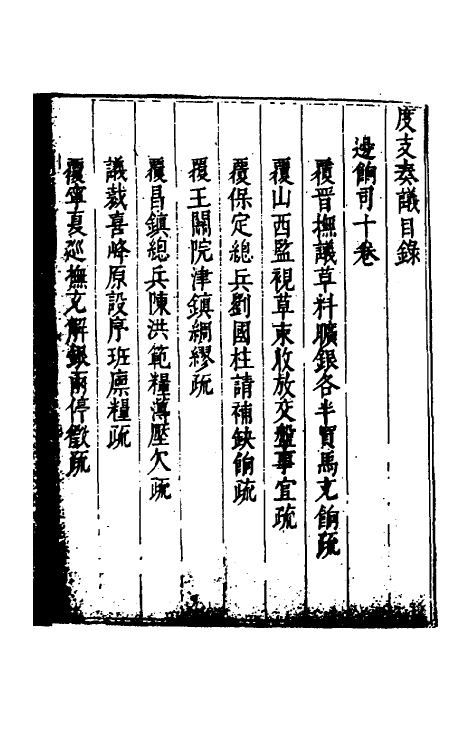 度支奏議目錄
邊餉司十卷
覆晉撫議草料曠銀各半買馬充餉疏
覆山西監視草束收放交盤事宜疏
覆保定總兵劉國柱請補缺餉疏
覆王關院津鎮綢繆疏
覆昌鎮總兵陳洪範糧薄壓欠疏
議裁喜峰原設序班廩糧疏
覆寧夏巡撫充解銀兩停徵疏